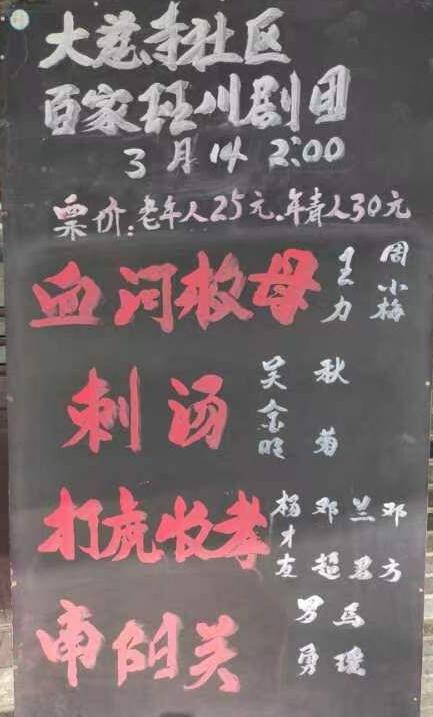 大慈寺社区
百家班川剧团
3月14 2:00
票价:老年人25元.年青人30元
血河救母 王力 周小梅
刺汤 吴金明 秋菊
打虎收孝 杨才友 邓超 兰君 邓方
南阳关 男勇 马瑶